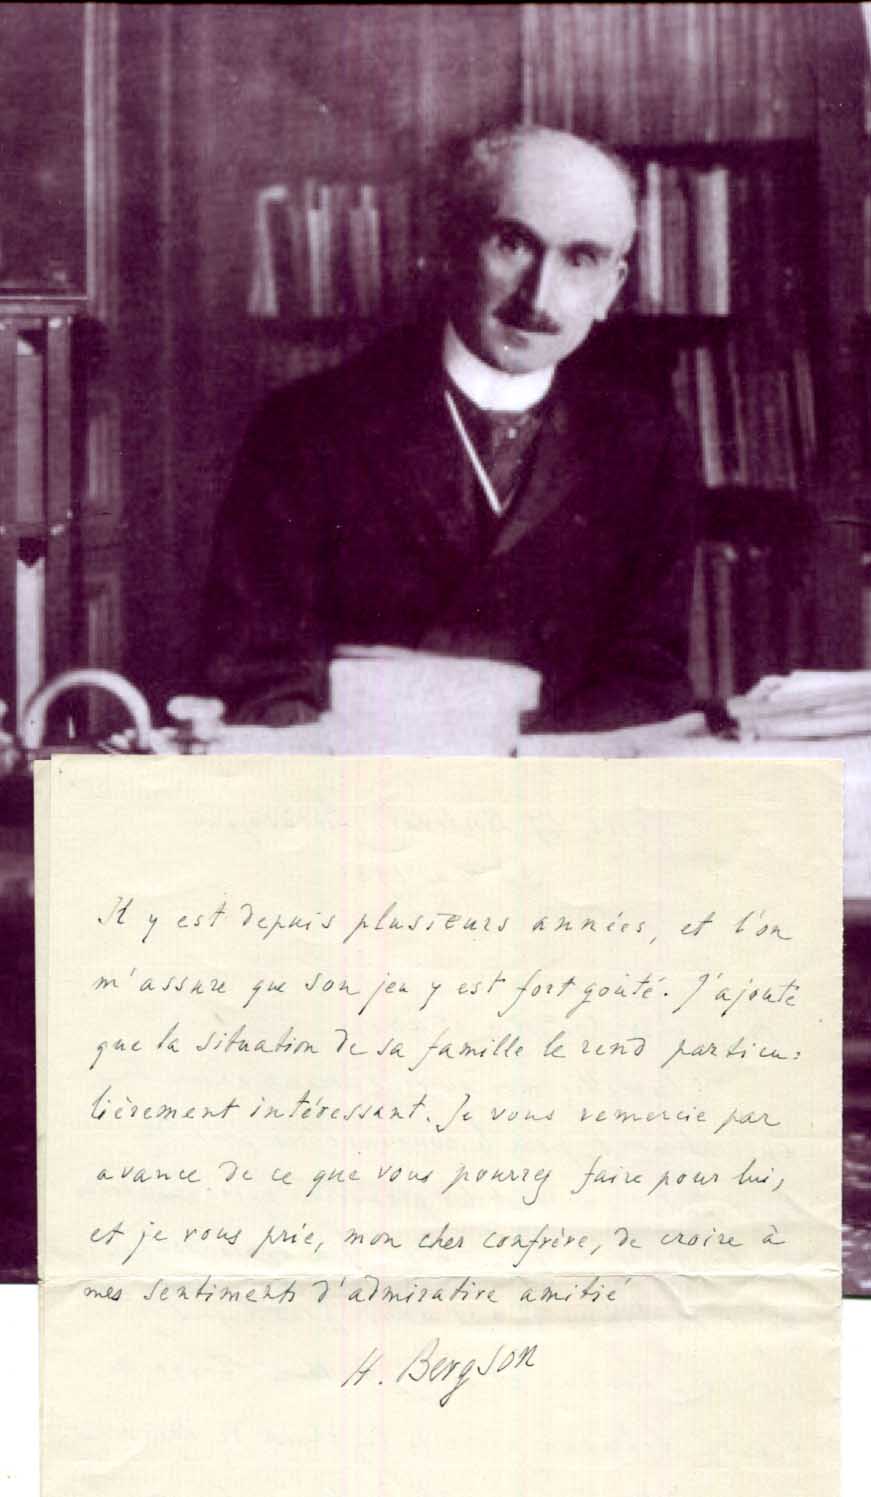 Il y est depuis plusieurs années, et l'on
m'assure que son jeu y est fort goûté. J'ajoute
que la situation de sa famille le rend particu=
lièrement intéressant. Je vous remercie par
avance de ce que vous pourrez faire pour lui,
et je vous prie, mon cher confrère, de croire à
mes sentiments d'admirative amitié
H. Bergson